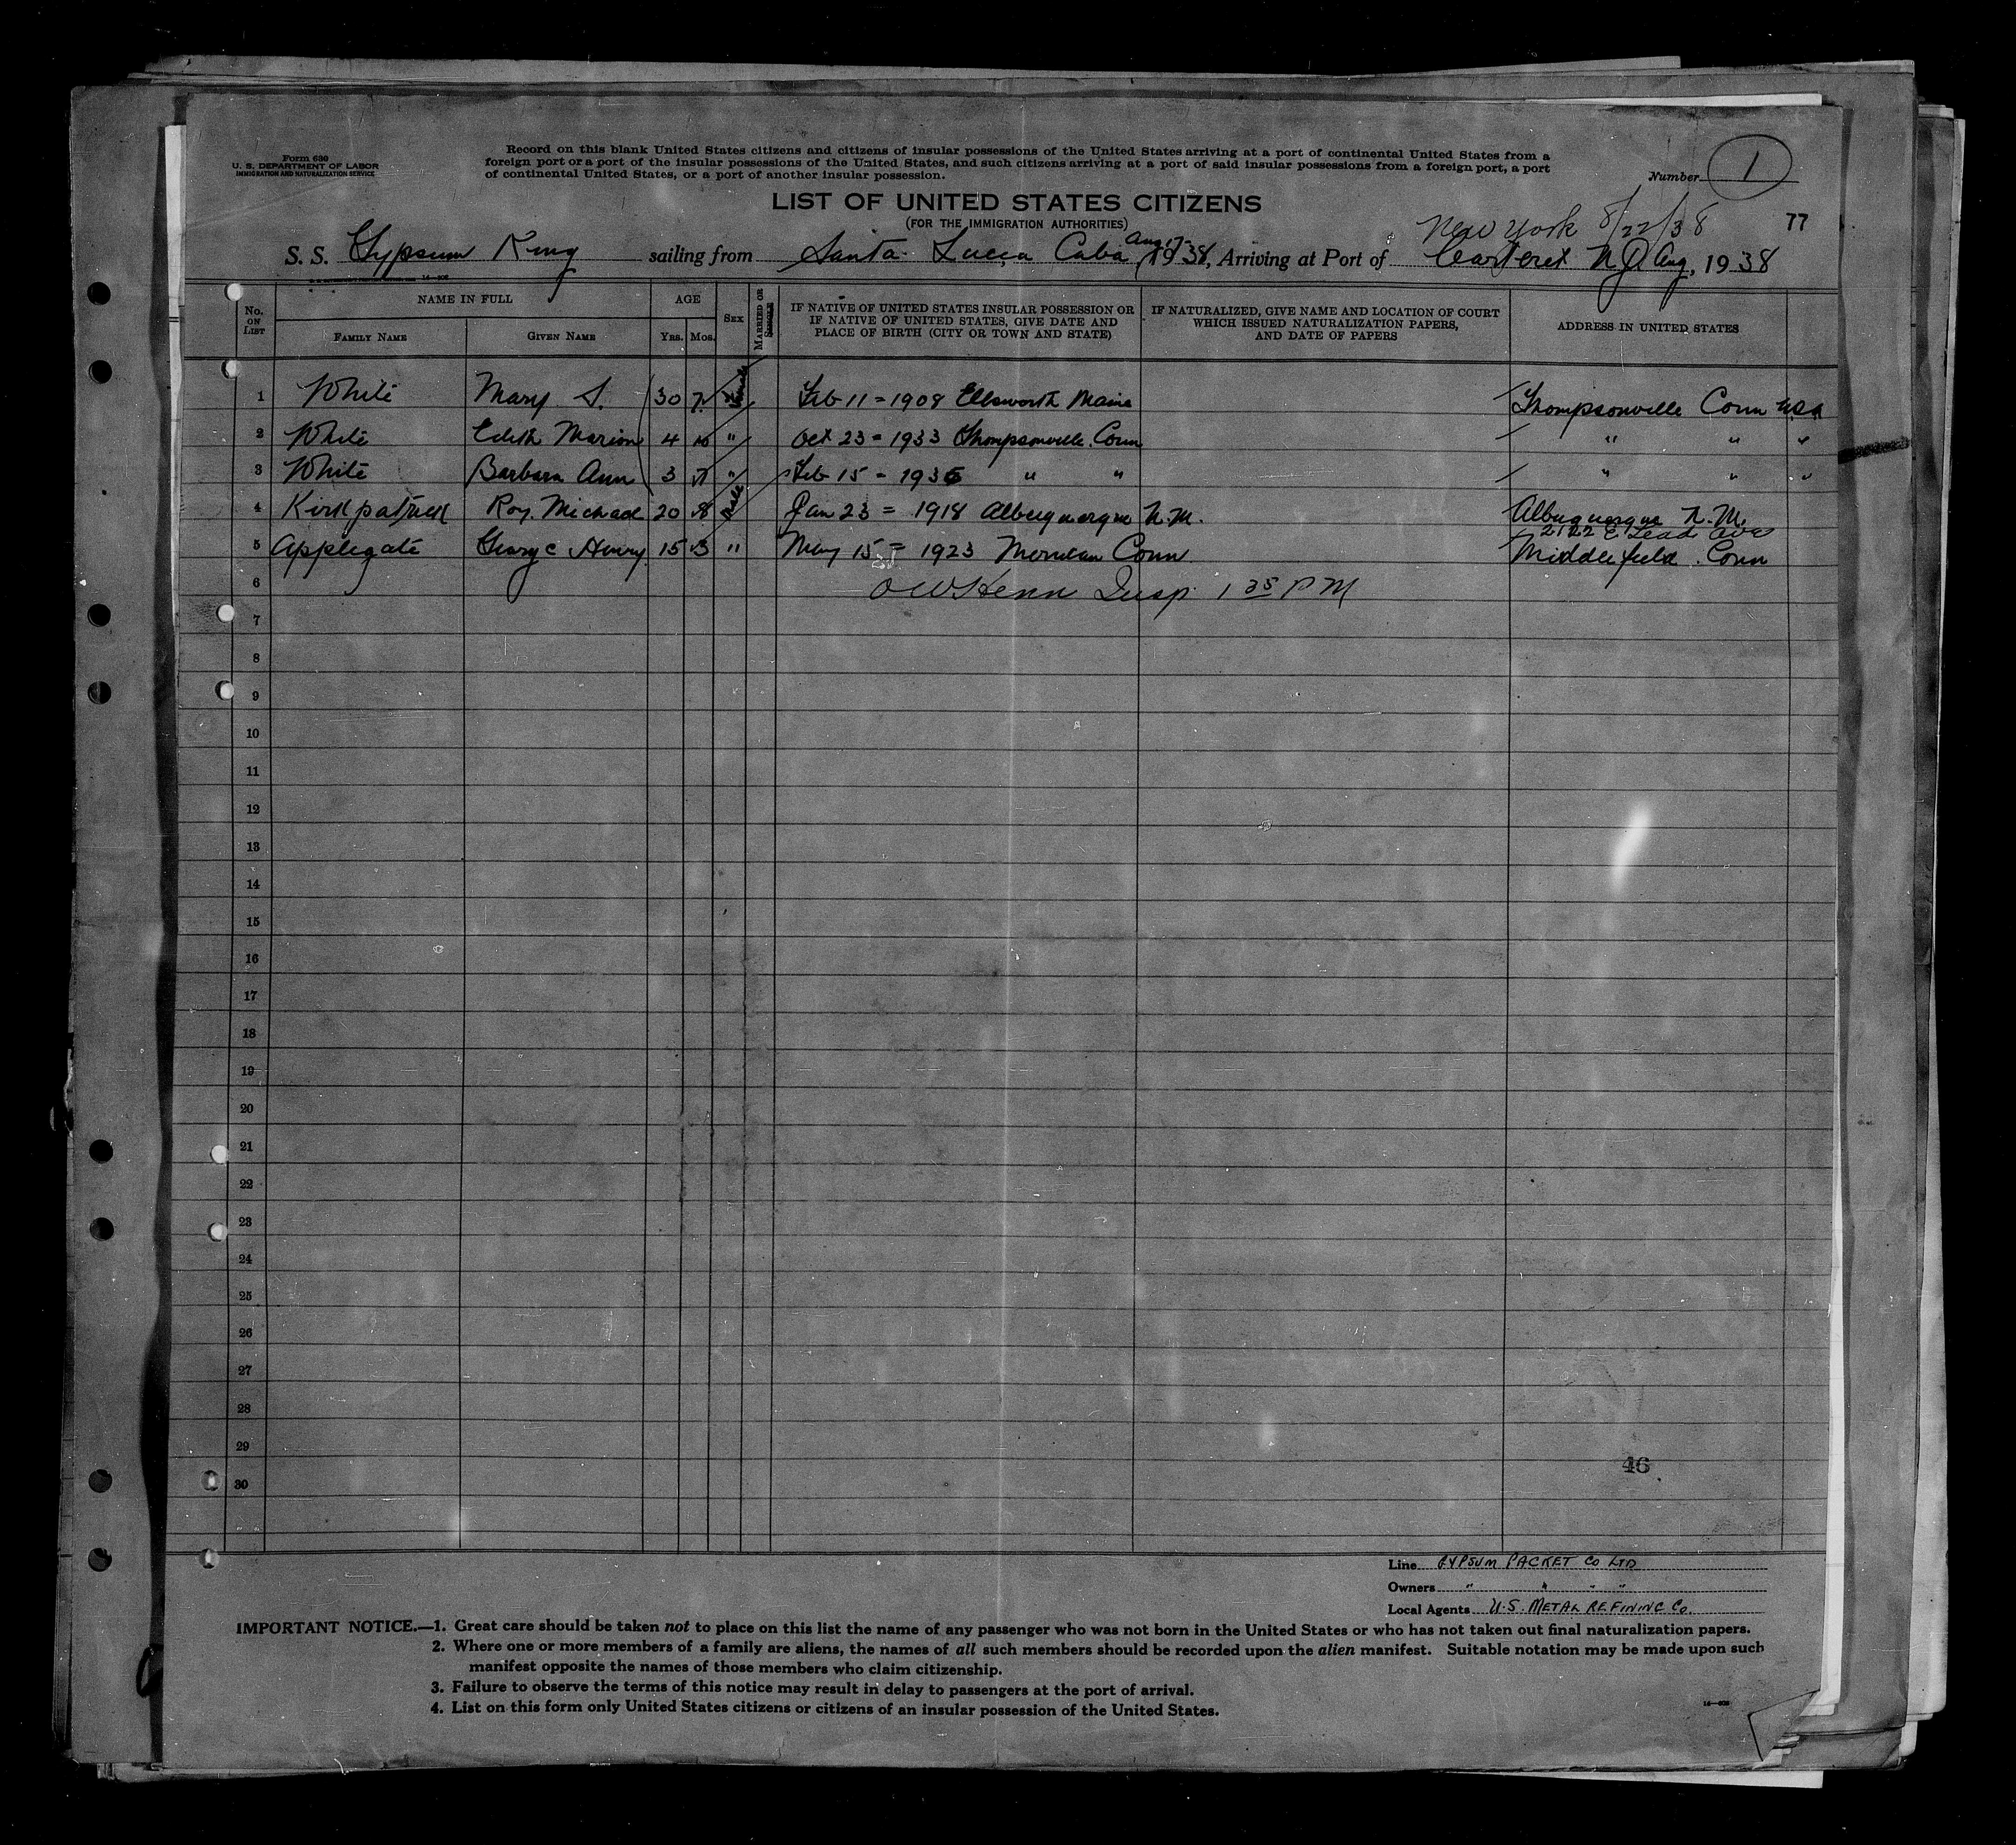 Form 630
U. S. DEPARTMENT OF LABOR
IMMIGRATION AND NATURALIZATION SERVICE
Record on this blank United States citizens and citizens of insular possessions of the United States arriving at a port of continental United States from a
foreign port or a port of the insular possessions of the United States, and such citizens arriving at a port of said insular possessions from a foreign port, a port
of continental United States, or a port of another insular possession.
Number 1
LIST OF UNITED STATES CITIZENS
(FOR THE IMMIGRATION AUTHORITIES)
New York 8/22/38
77
S. S. Gypsum King sailing from Santa Lucia Cuba Aug 17- 1938, Arriving at Port of Carteret N.J. Aug, 1938
No. ON LIST
NAME IN FULL
FAMILY NAME
GIVEN NAME
AGE
YRS.
MOS.
SEX
MARRIED OR SINGLE
IF NATIVE OF UNITED STATES INSULAR POSSESSION OR
IF NATIVE OF UNITED STATES, GIVE DATE AND
PLACE OF BIRTH (CITY OR TOWN AND STATE)
IF NATURALIZED, GIVE NAME AND LOCATION OF COURT
WHICH ISSUED NATURALIZATION PAPERS,
AND DATE OF PAPERS
ADDRESS IN UNITED STATES
1 White Mary S. 30 7 Female Feb 11 = 1908 Ellsworth Maine Thompsonville Conn USA
2 White Edith Marion 4 10 " Oct 23 = 1933 Thompsonville Conn " " "
3 White Barbara Ann 3 " Feb 15 - 1935 " " " " "
4 Kirkpatrick Roy Michael 20 Male Jan 23 = 1918 Albuquerque N.M. Albuquerque N.M.
2122 E Lead Ave
5 Applegate George Henry 15 3 " May 15 = 1923 Meriden Conn Middlefield Conn
6 Insp. 1 35 PM
7
8
9
10
11
12
13
14
15
16
17
18
19
20
21
22
23
24
25
26
27
28
29
46
30
Line GYPSUM PACKET CO LTD
Owners " " " "
Local Agents U.S. METAL REFINING CO.
IMPORTANT NOTICE.—1. Great care should be taken not to place on this list the name of any passenger who was not born in the United States or who has not taken out final naturalization papers.
2. Where one or more members of a family are aliens, the names of all such members should be recorded upon the alien manifest. Suitable notation may be made upon such
manifest opposite the names of those members who claim citizenship.
3. Failure to observe the terms of this notice may result in delay to passengers at the port of arrival.
4. List on this form only United States citizens or citizens of an insular possession of the United States.